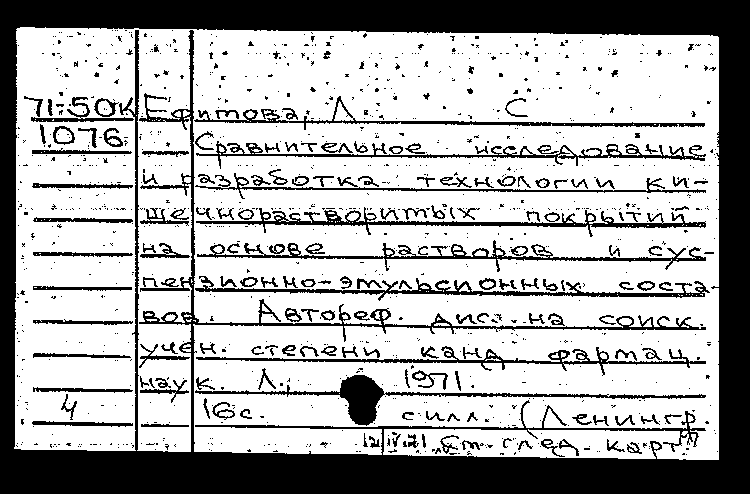 71-50К Ефимова, Л. С
1076 Сравнительное исследование
и разработка технологии ки-
шечнорастворимых покрытий
на основе растворов и сус-
пензионно-эмульсионных соста-
вов. Автореф. дисс. на соиск.
учен. степени канд. фармац.
наук. Л., 1971.
4 16 с. с илл. (Ленингр.
См. след. карт.